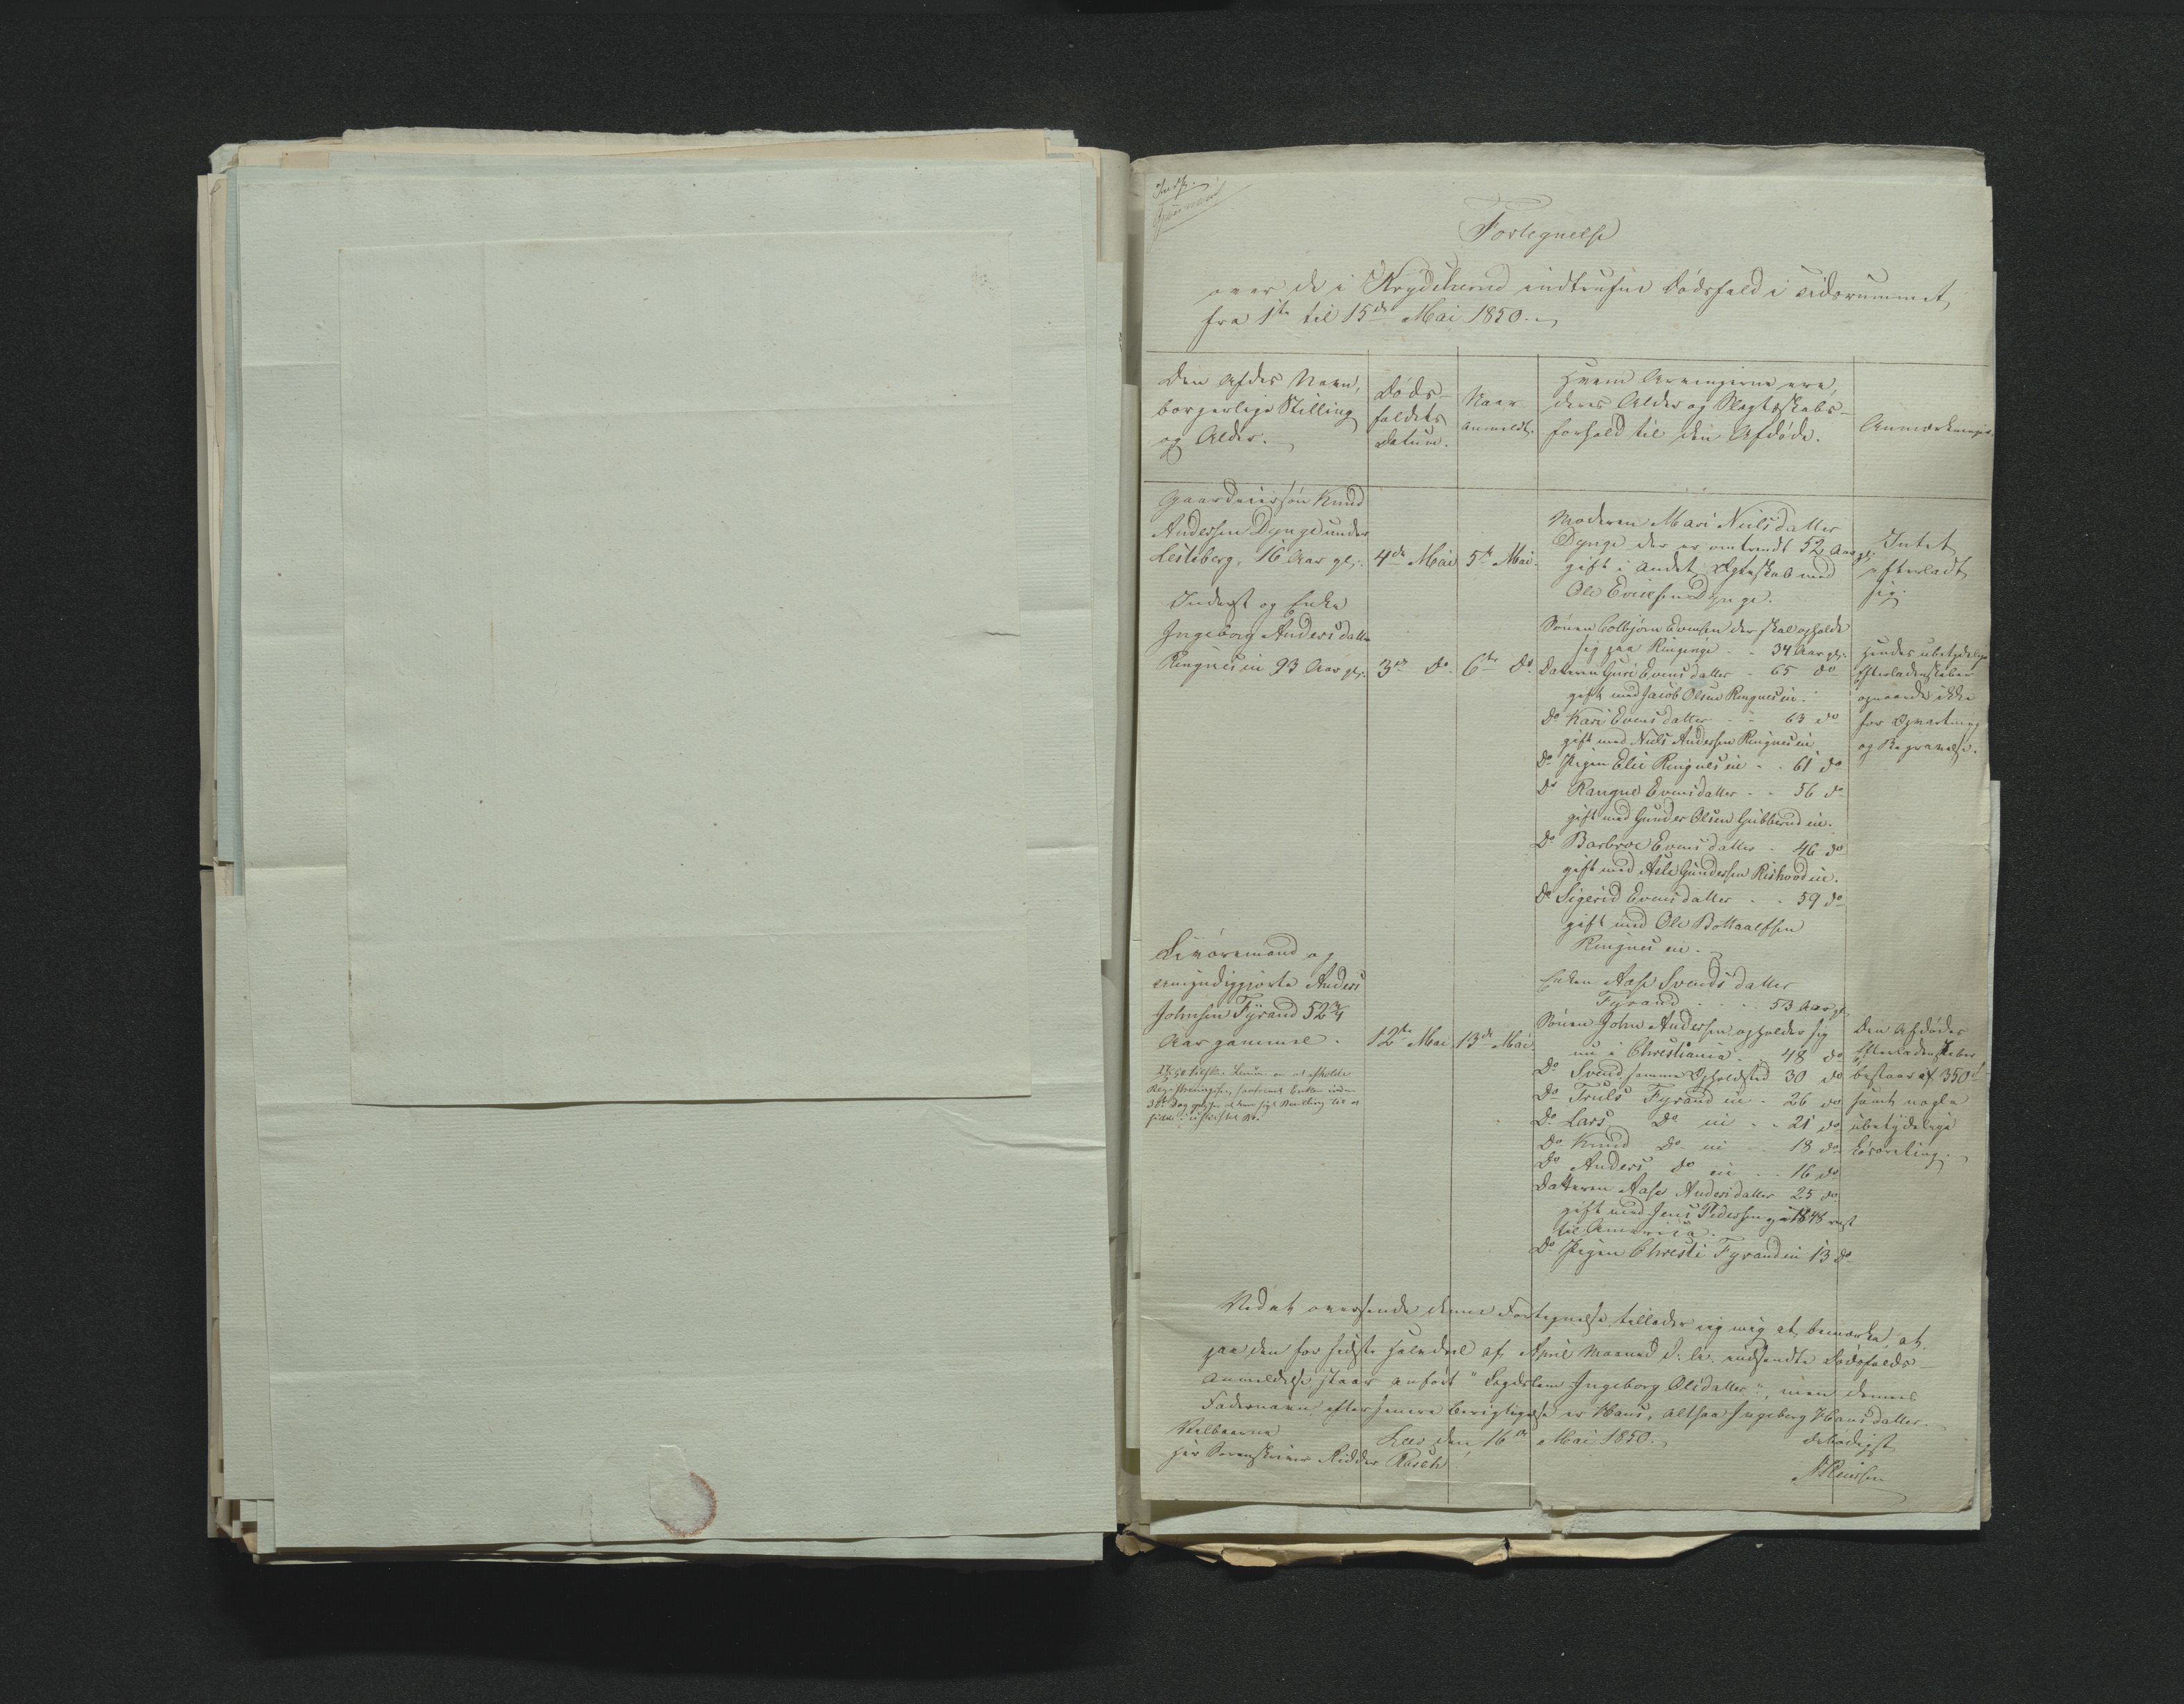 Fortegnelse
over de i Krydsherred indtrufne Dødsfald i Tidsrummet
fra 1ste til 15de Mai 1850.
Den Afdødes Navn,
borgerlige Stilling
og Alder.
Døds-
faldets
Datum.
Naar
anmeldt.
Hvem Arvingerne ere,
deres Alder og Slægtskabs-
forhold til den Afdøde.
Anmærkninger.
Knud
Andersen Dynge under
Lesteberg, 16 Aar gl.
4de Mai
5te Mai.
Moderen Mari Nielsdatter
Dynge der er omtrendt 52 Aar gl.
gift i andet Ægteskab med
Ole Evensen Dynge.
Intet
efterladt
sig.
Inderst og Enke
Ingeborg Andersdatter
Ringnesei 93 Aar gl.
3die do.
6te do
Sønnen Colbjørn Evensen der skal opholde
sig paa Ringerige - - 34 Aar gl.
Datteren Guri Evensdatter - 65 do
gift med Jacob Olsen Ringnesei.
Do Kari Evensdatter - - 63 do
gift med Niels Andersen Ringnesei
Do Pigen Elie Ringnesei - - 61 do
Do Rangne Evensdatter - - 56 do
gift med Gunder Olsen Gubberudei.
Do Barbroe Evensdatter - 46 do
gift med Asle Gundersen Rishovdei.
Do Sigerid Evensdatter - - 59 do
gift med Ole Bottaalfsen
Ringnesei.
Hendes ubetydelige
Efterladenskaber
opveiede ikke
for Opvartning
og Begravelse.
og
umyndiggjorte Anders
Johnsen Fyrand 52 3/4
Aar gammel.
12te Mai
13de Mai
Enken Aase Svendsdatter
Fyrand - - - 53 Aar gl
Sønnen John Andersen opholder sig
nu i Christiania - - 48 do
Do Svend, samme Opholdsted 30 do
Do Truls Fyrandei - 26 do
Do Lars Do ei - - 21 do
Do Knud Do ei - 18 do
Do Anders do ei - - 16 do
Datteren Aase Andersdatter 25 do
gift med Jens Pedersen 1848 reist
til America.
Do Pigen Christi Fyrandei 13 do
Den Afdødes
Efterladenskaber
bestaar af 350
samt nogle
ubetydelige
Løsøreting.
Ved at oversende denne Fortegnelse tillader jeg mig at bemærke, at
paa den for sidste Halvdeel af April Maaned d. A. indsendte Dødsfalds-
Anmeldelse staar anført "Lægdslem Ingeborg Olsdatter", men dennes
Fadernavn efter senere Berigtigelse er Hans, altsaa Ingeborg Hansdatter.
den 16de Mai 1850.
ærbødigst
Velbaarne
Herr Sorenskriver Ridder Rasch!